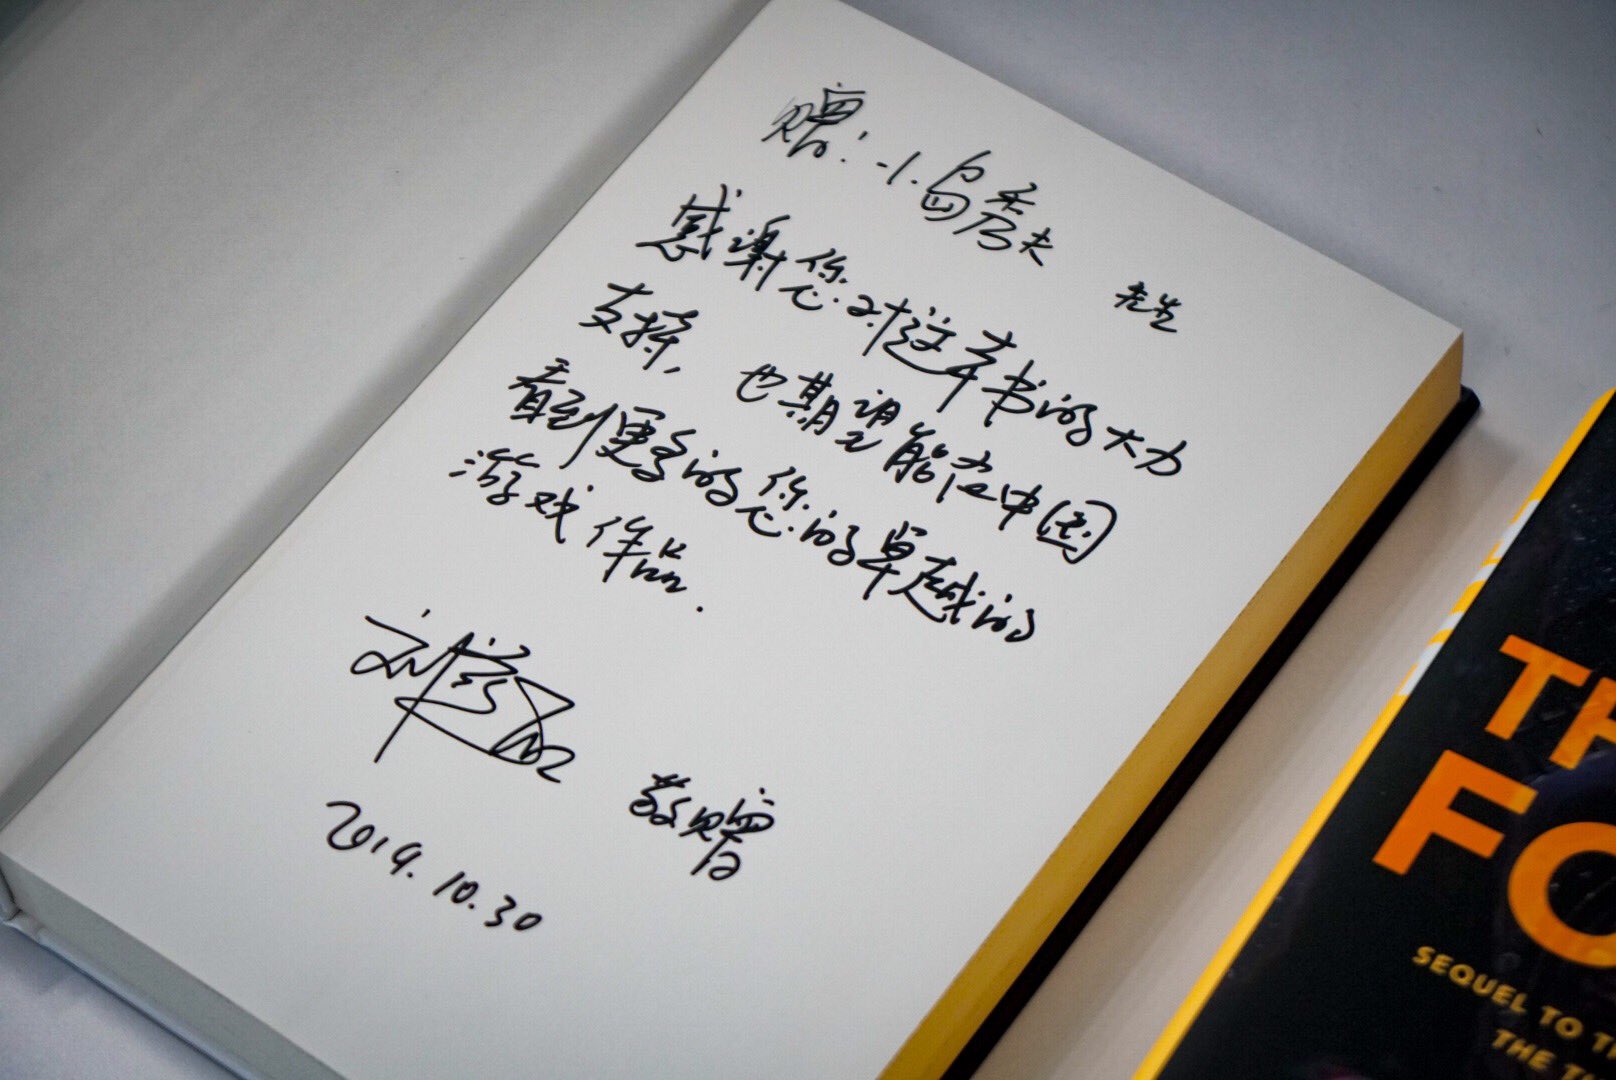 赠：小岛秀夫 先生
感谢您对这本书的大力
支持，也期望能在中国
看到更多的您的卓越的
游戏作品．
刘慈欣 敬赠
2019.10.30
TH
FO
SEQUEL TO T
THE T